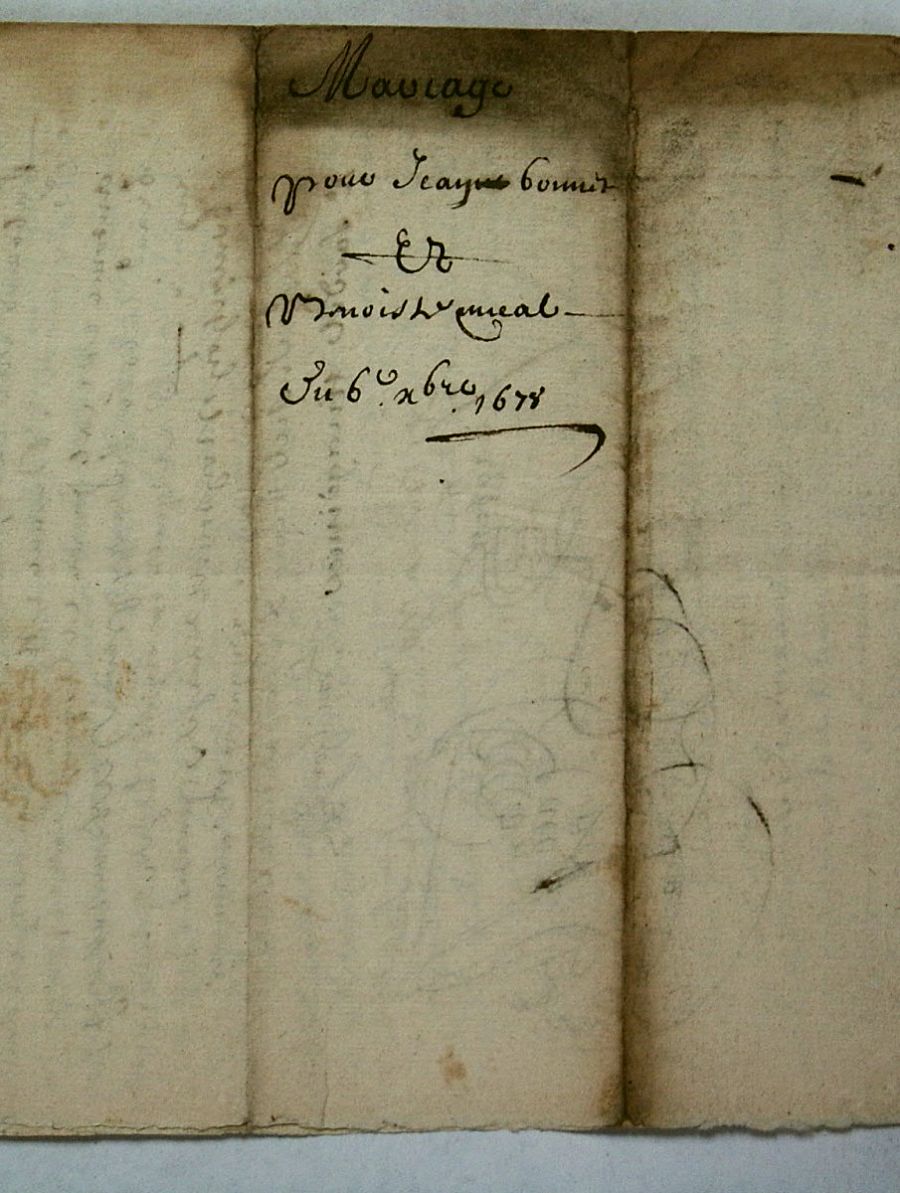 Mariage
pour Jeayne bonnet
Et
Benoiste
Du 6e. xbre. 1678